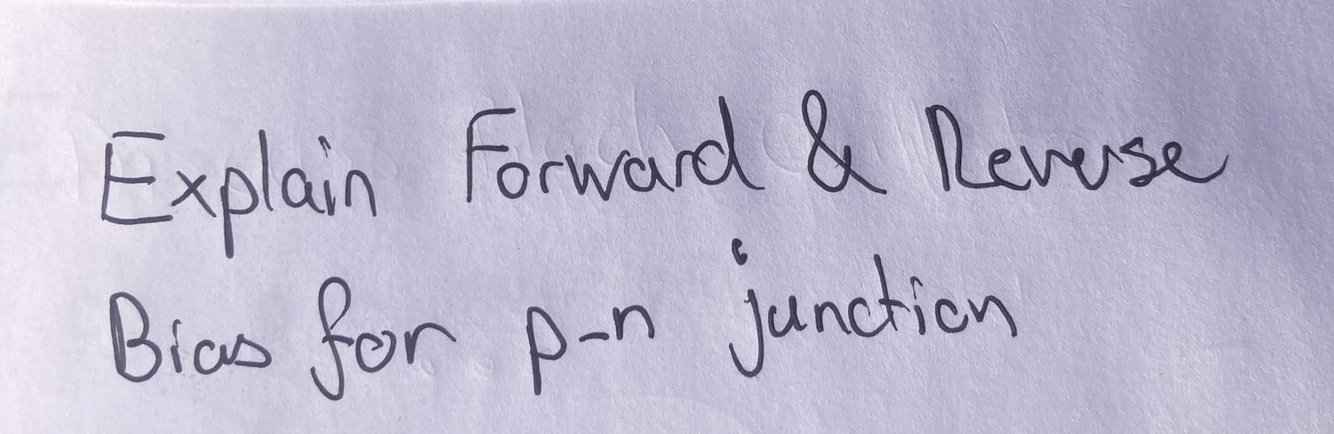 Explain Forward & Reverse
Bias for p-n junction